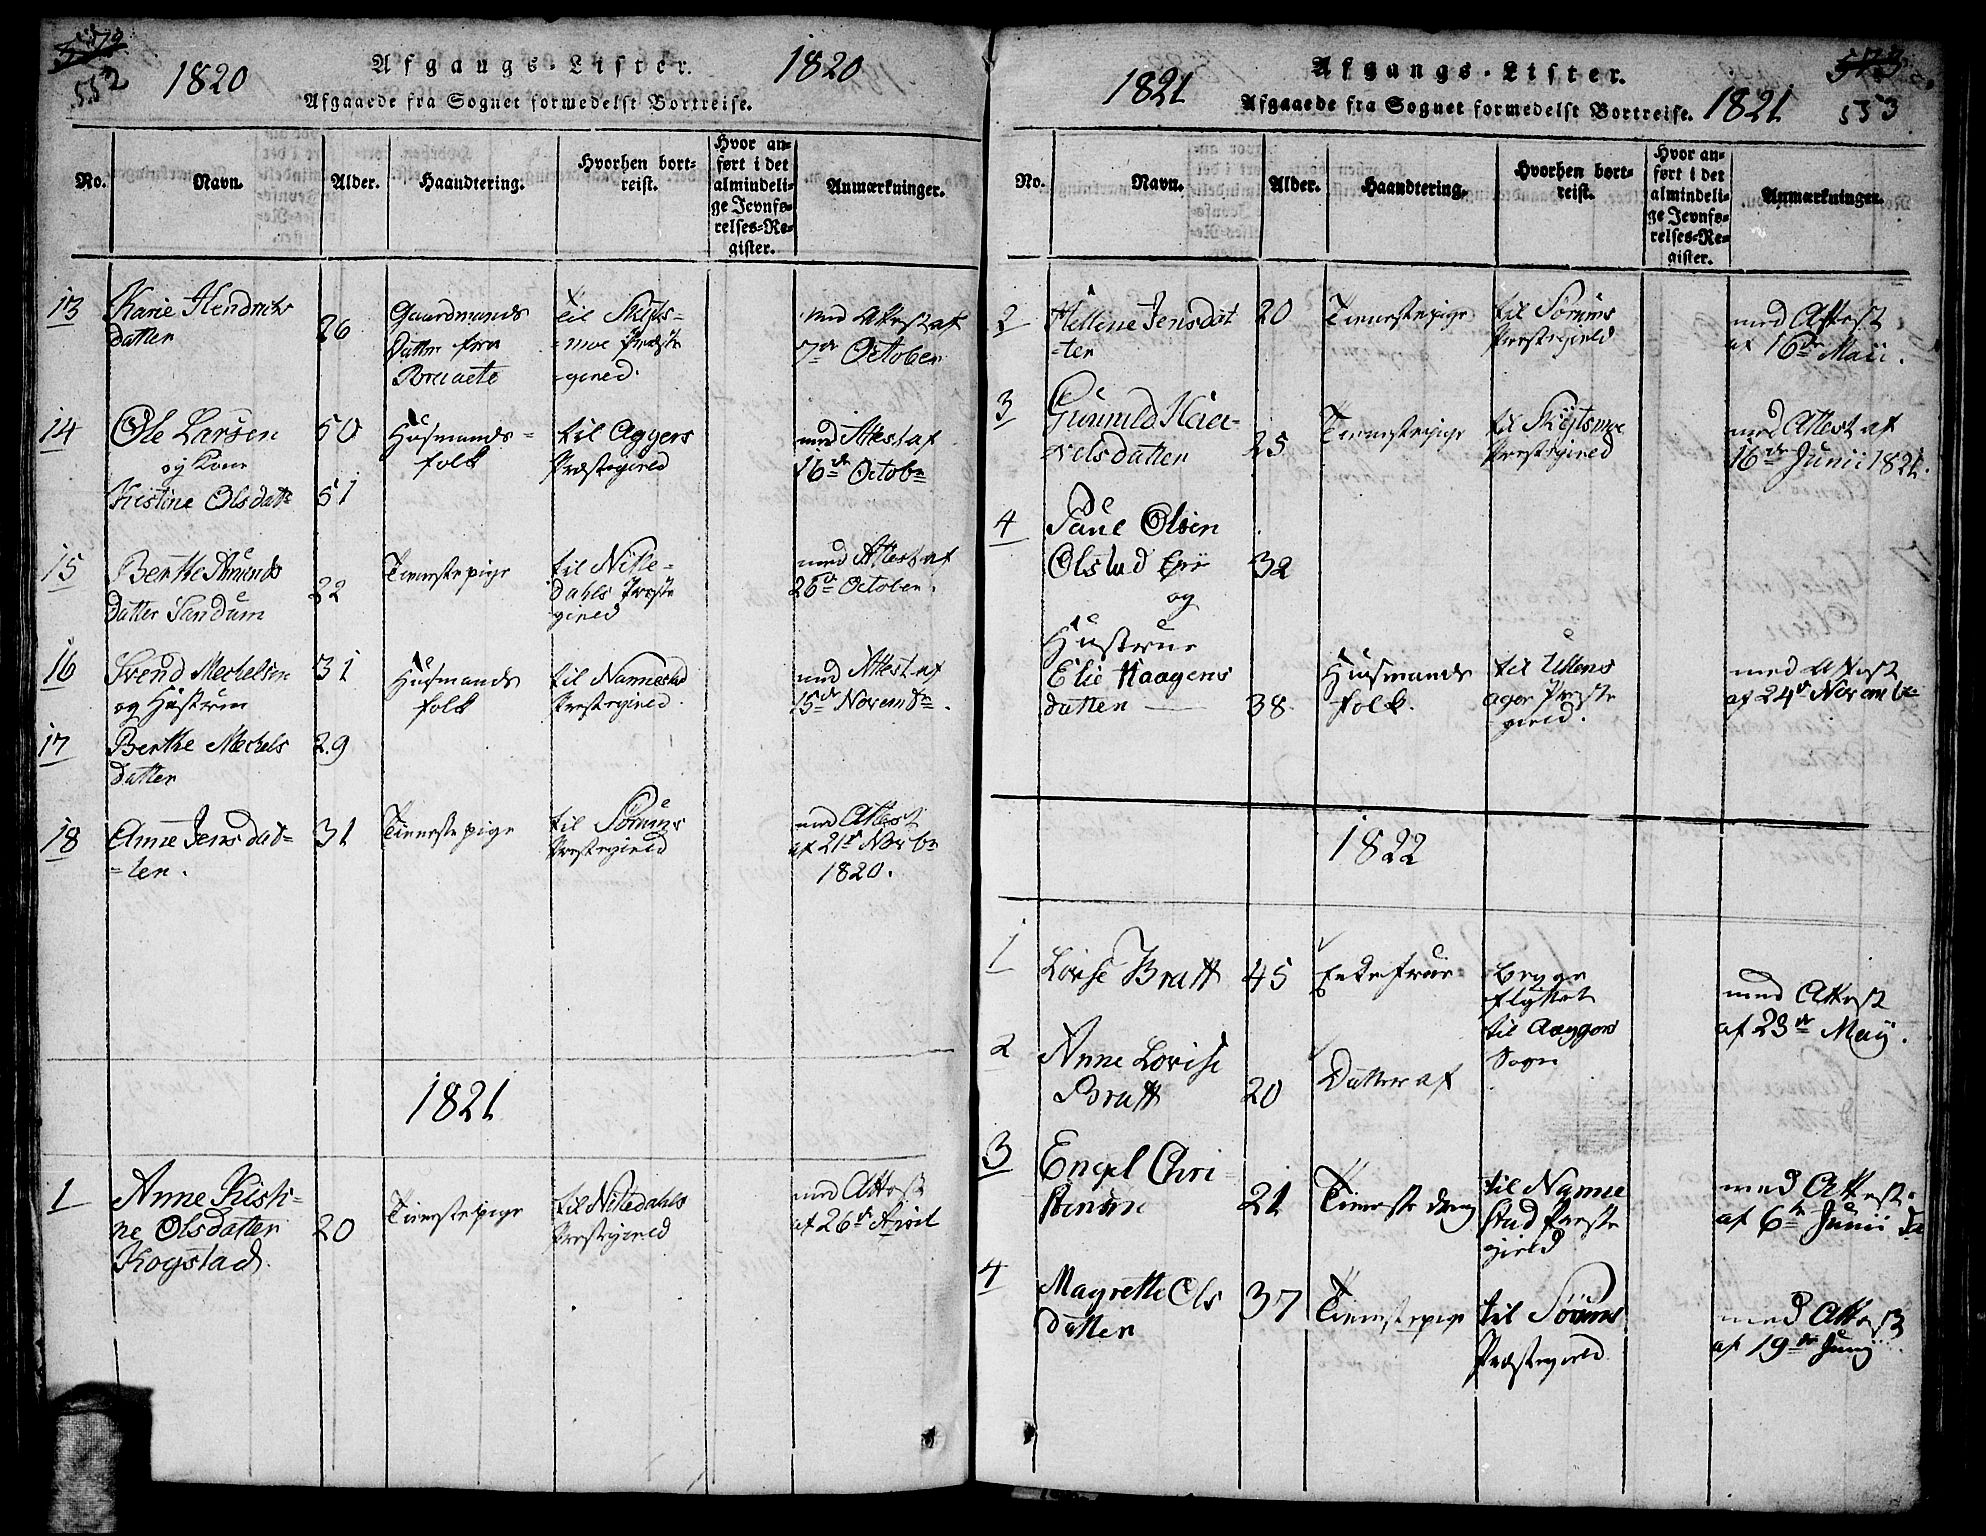 552
1820
Afgangs-Lister.
1820
Afgaaede fra Sognet formedelst Bortreise.
No.
Navn.
Alder.
Haandtering.
Hvorhen bort-
reist.
Hvor an-
ført i det
almindeli-
ge Jevnfø-
relses-Re-
gister.
Anmærkninger.
13
Karie Hendrichs
datter
26
Gaardmands
Datter fra
til Skids-
moe Præste
gield.
med Attest af
7de October
14
Ole Larsen
og Kone
Kistine Olsdatr
50
51
Huusmands-
folk
til Aggers
Præstegield
med Attest af
16de Octobr
15
Berthe Amunds
datter Sandum
22
Tienestepige
til Nitte-
dahls Præste
gield
med Attest af
26de October.
16
Svend Mechelsen
og Hustrue
31
Huusmands
folk
til Nannestad
Præstegield.
med Attest af
15de Novembr.
17
Berthe Mechels
datter
29
18
Anne Jens dat-
-ter.
31
Tienestepige
til Sørums
Præstegield
med Attest
af 21de Novbr
1820.
1821
1
Anne Kisti-
ne Olsdatter
Kogstad
20
Tienestepige
til Nitedahls
Præstegield
med Attest
af 26de April
553
1821
Afgangs-Lister.
Afgaaede fra Sognet formedelst Bortreise.
1821
No.
Navn.
Alder.
Haandtering.
Hvorhen bort-
reist.
Hvor an-
ført i det
almindeli-
ge Jevnfø-
relses-Re-
gister.
Anmærkninger.
2
Helline Jensdat
-ter
20
Tienestepige
til Sørums
Præstegield
med Attest
af 16de Maii.
3
Gunnild Haa-
velsdatter
25
Tienestepige
til Skejtsmoe
Præstegield
med Attest af
16de Junii 1821.
4
Paul Olsen
Olstad Eje
og
Hustrue
Elie Haagens
datter
32
38
Huusmands
folk.
til Ullens
ager Præste
gield.
med Attest
af 24de Novembr
1822
1
Lovise Bratt
45
Enkefrue
begge
flyttet
til Aaggers
Sogn
med Attest
af 23de Maij.
2
Anne Lovise
Bratt
20
Datter af
3
Engel Chri
stensen
21
Tieneste dreng
til Nanne
stad Præste
gield
med Attest
af 6te Junii
4
Magrethe Ols
datter
37
Tienestepige
til Sørums
Præstegield
med Attest
af 19de Junij